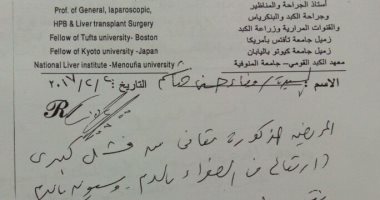 Prof. of General, laparoscopic,
HPB & Liver transplant Surgery
Fellow of Tufts university- Boston
Fellow of Kyoto university -Japan
National Liver institute -Menoufia university
أستاذ الجراحة والمناظير
وجراحة الكبد والبنكرياس
والقنوات المرارية وزراعة الكبد
زميل جامعة تافتس بأمريكا
زميل جامعة كيوتو باليابان
معهد الكبد القومى - جامعة المنوفية
الاسم : السيدة / وفاء حسنى
التاريخ : ٢٠١٧/٢/٢
R
المريضة المذكورة تعانى من فشل كبدى
(ارتفاع فى الصفراء بالدم وسيولة بالدم